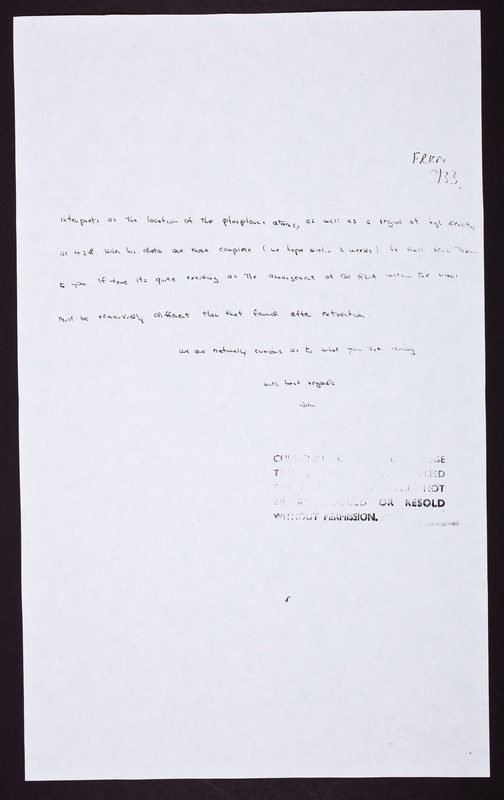 FRKN
2/33
interprets as the location of the phosphorus atoms, as well as a region of high density
at 42Å. When his data are more complete (we hope within 2 weeks) he shall send them
to you. If true its quite exciting as the arrangement of the RNA within the virus
must be remarkably different than that found after extraction
We are naturally curious as to what you are doing
with best regards
Jim
CHURCHILL
NOT
OR RESOLD
WITHOUT PERMISSION.